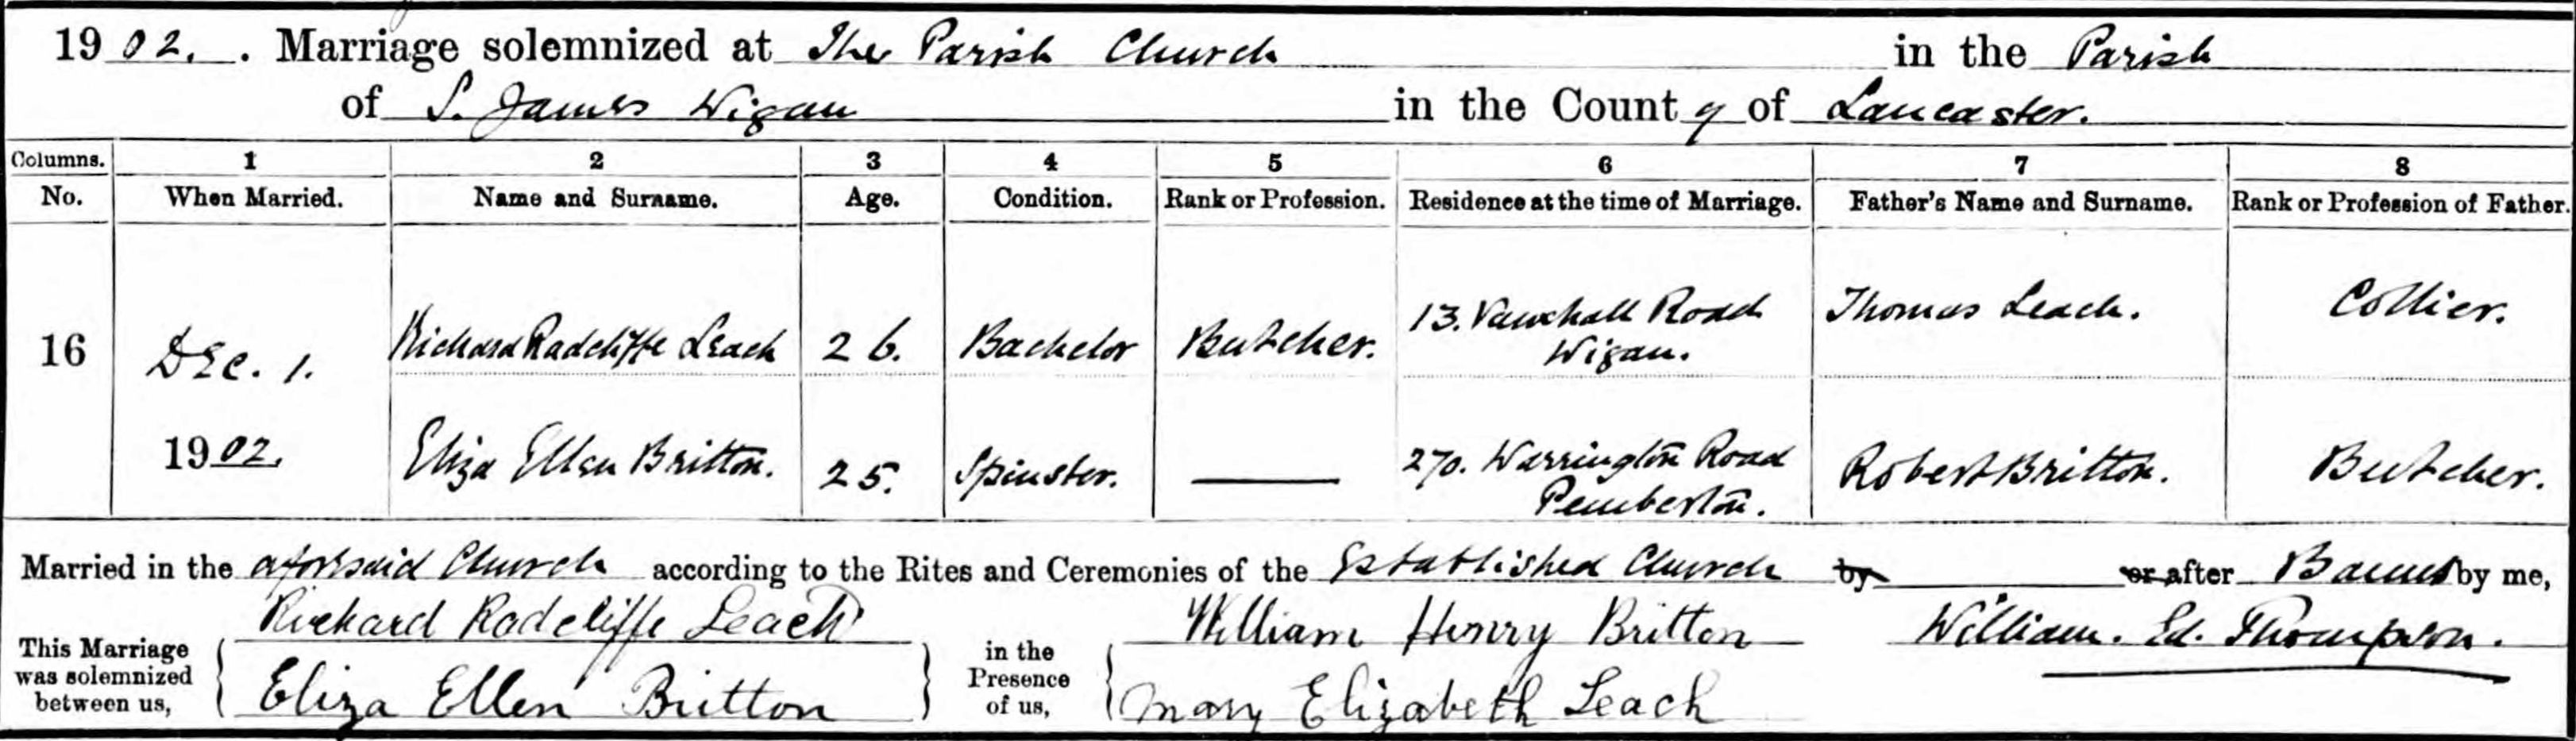 1902. . Marriage solemnized at The Parish Church in the Parish
of S. James Wigan in the County of Lancaster.
Columns. 1 2 3 4 5 6 7 8
No. When Married. Name and Surname. Age. Condition. Rank or Profession. Residence at the time of Marriage. Father's Name and Surname. Rank or Profession of Father.
16 Dec. 1. Richard Radcliffe Leach 26. Bachelor Butcher. 13. Vauxhall Road Thomas Leach. Collier.
Wigan.
1902. Eliza Ellen Britton. 25. Spinster. — 270. Warrington Road Robert Britton. Butcher.
Pemberton.
Married in the aforesaid Church according to the Rites and Ceremonies of the Established Church by or after Banns by me,
This Marriage was solemnized between us,
Richard Radcliffe Leach
Eliza Ellen Britton
in the Presence of us,
William Henry Britton
Mary Elizabeth Leach
William. Ed. Thompson.